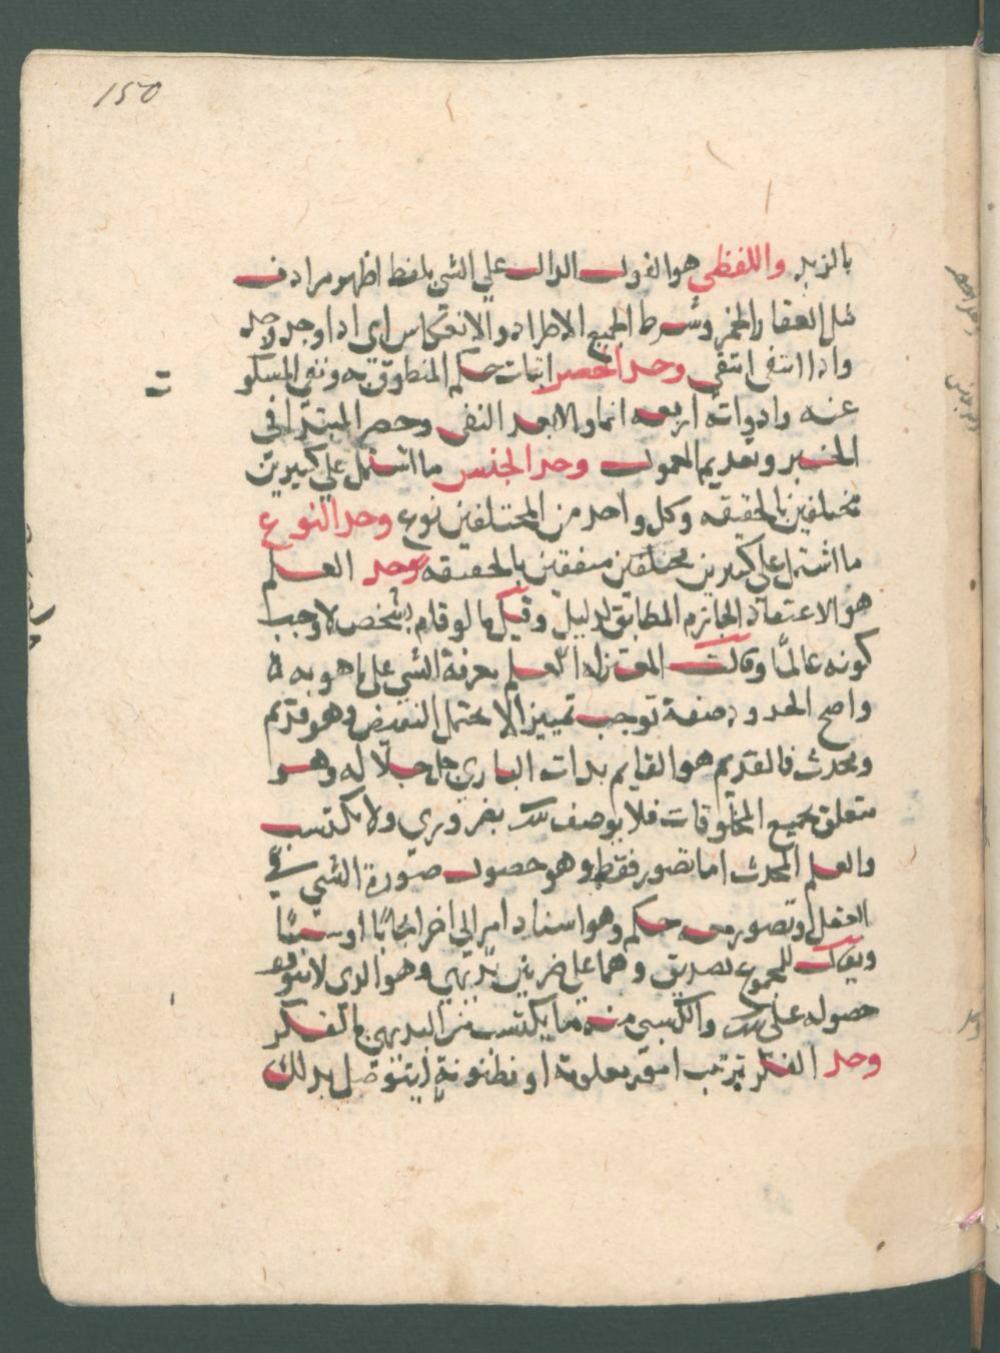 150
بالزبد واللفظي هو القول الدال على الشي بلفظ اظهر مرادف
مثل العقار الخمر وشرط الجميع الاطراد والانعكاس اى اذا وجد وجد
واذا انتفى انتفى وحد الحصر اثبات حكم المنطوق به ونفي المسكو
ت
عنه وادواته اربعه انما والا بعد النفى وحصر المبتدا في
الخبر وتقديم المعمول وحد الجنس ما اشتمل على كثيرين
مختلفين بالحقيقه وكل واحد من المختلفين نوع وحد النوع
ما اشتمل على كثيرين مختلفين متفقين بالحقيقه وحد العلم
هو الاعتقاد الجازم المطابق لدليل وقيل ما لو قام بشخص لاوجب
كونه عالمًا وقالت المعتزله العلم معرفة الشي على ما هو به
واصح الحدود صفة توجب تمييزا لا يحتمل النقيض وهو قديم
ومحدث فالقديم هو القايم بذات الباري جل جلاله وهو
متعلق بجميع المخلوقات فلا يوصف بضروري ولا مكتسب
والعلم المحدث اما تصور فقط وهو حصول صورة الشي في
العقل او تصور معه حكم وهو اسناد امر الى اخر ايجابًا او سلبًا
ويقال للمجموع تصديق وهما على ضربين بديهي وهو الذي لا يتوقف
حصوله على والكسبي منه ما يكتسب من البديهي بالفكر
وحد الفكر ترتيب امور معلومة او مظنونة ليتوصل بذلك